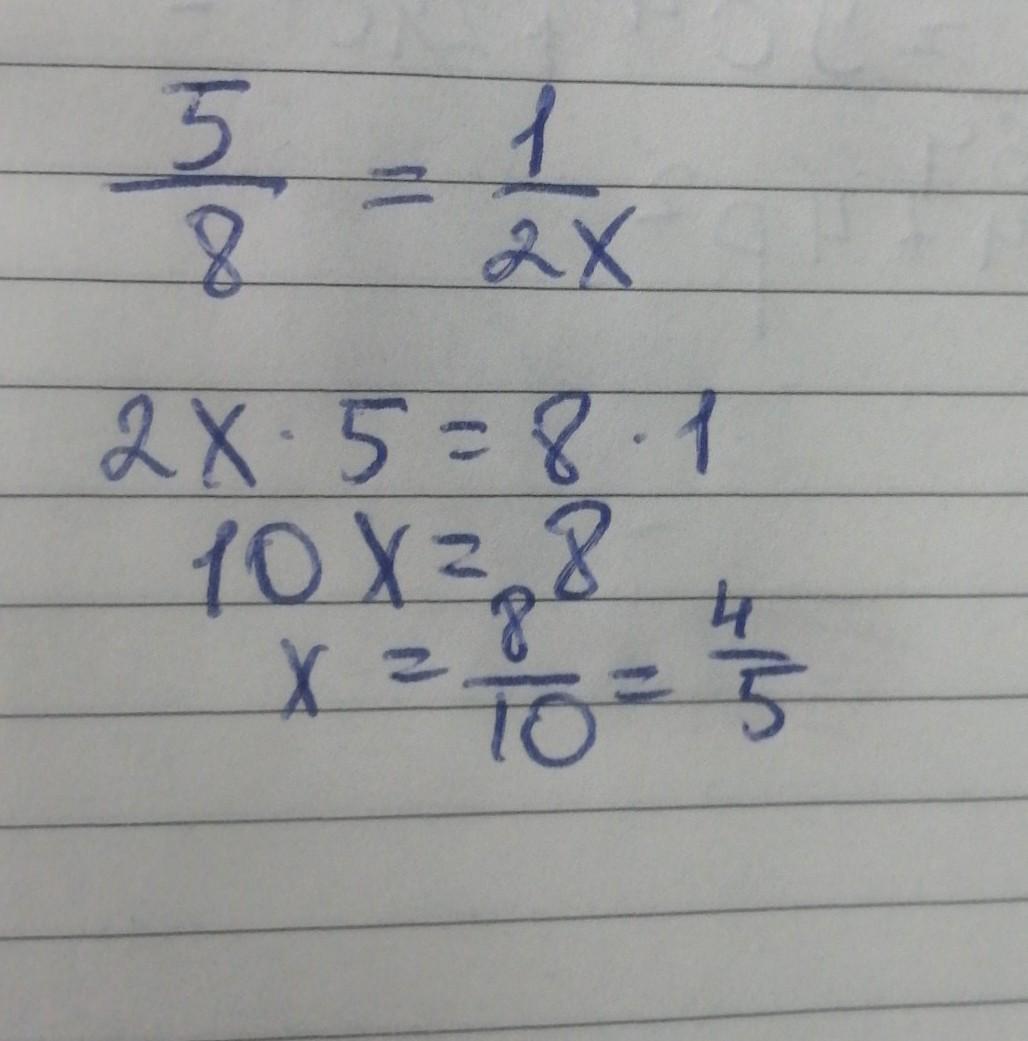 5/8 = 1/2x
2x · 5 = 8 · 1
10x = 8
x = 8/10 = 4/5